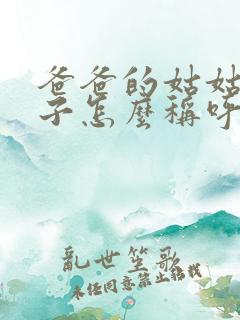 爸爸的姑姑
子怎麼稱呼
亂世笙歌
未经同意禁止转载